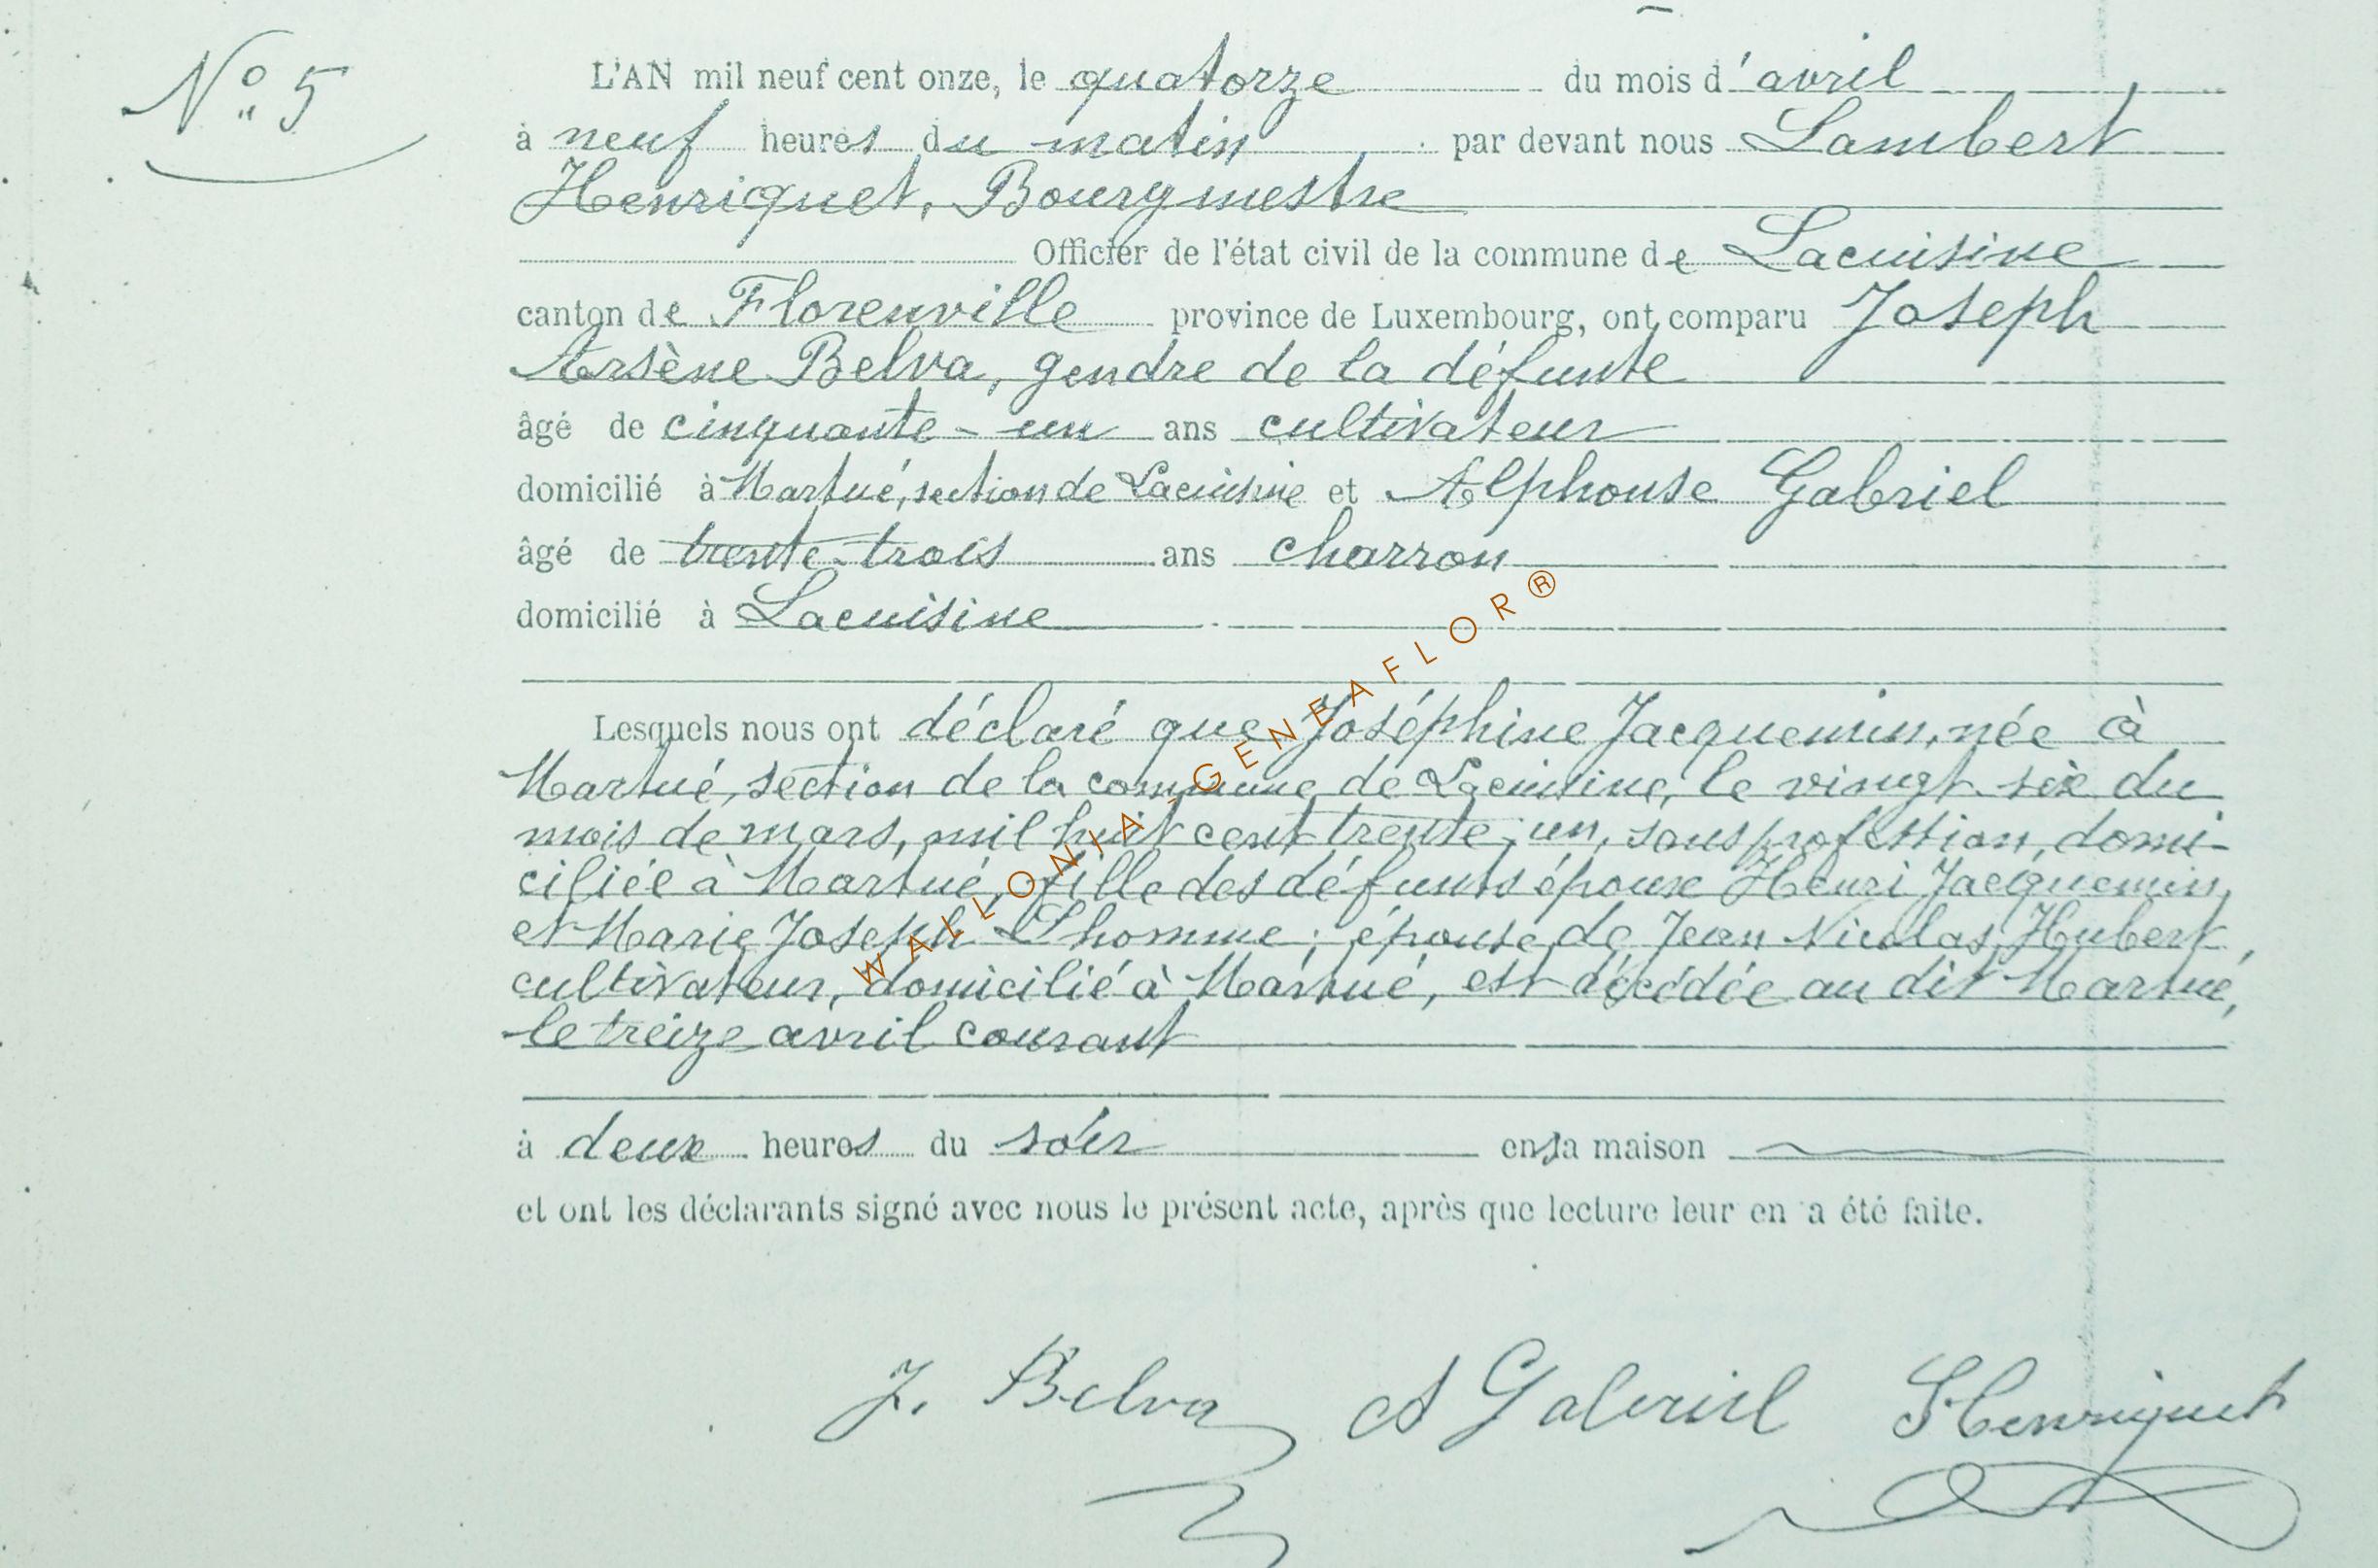 N° 5
L'AN mil neuf cent onze, le quatorze du mois d'avril
à neuf heures du matin par devant nous Lambert
Henriquet, Bourgmestre
Officier de l'état civil de la commune de Lacuisine
canton de Florenville province de Luxembourg, ont comparu Joseph
Arsène Belva, gendre de la défunte
âgé de cinquante-un ans cultivateur
domicilié à Martué, section de Lacuisine et Alphonse Gabriel
âgé de trente-trois ans charron
domicilié à Lacuisine
Lesquels nous ont déclaré que Joséphine Jacquemin, née à
Martué, section de la commune de Lacuisine, le vingt-six du
mois de mars, mil huit cent trente-un, sans profession, domi-
ciliée à Martué, fille des défunts époux Henri Jacquemin,
et Marie Joseph Lhomme; épouse de Jean Nicolas Hubert,
cultivateur, domicilié à Martué, est décédée au dit Martué,
le treize avril courant
à deux heures du soir en sa maison
et ont les déclarants signé avec nous le présent acte, après que lecture leur en a été faite.
J. Belva A Gabriel Henriquet
WALLONIA-GENEAFLOR®